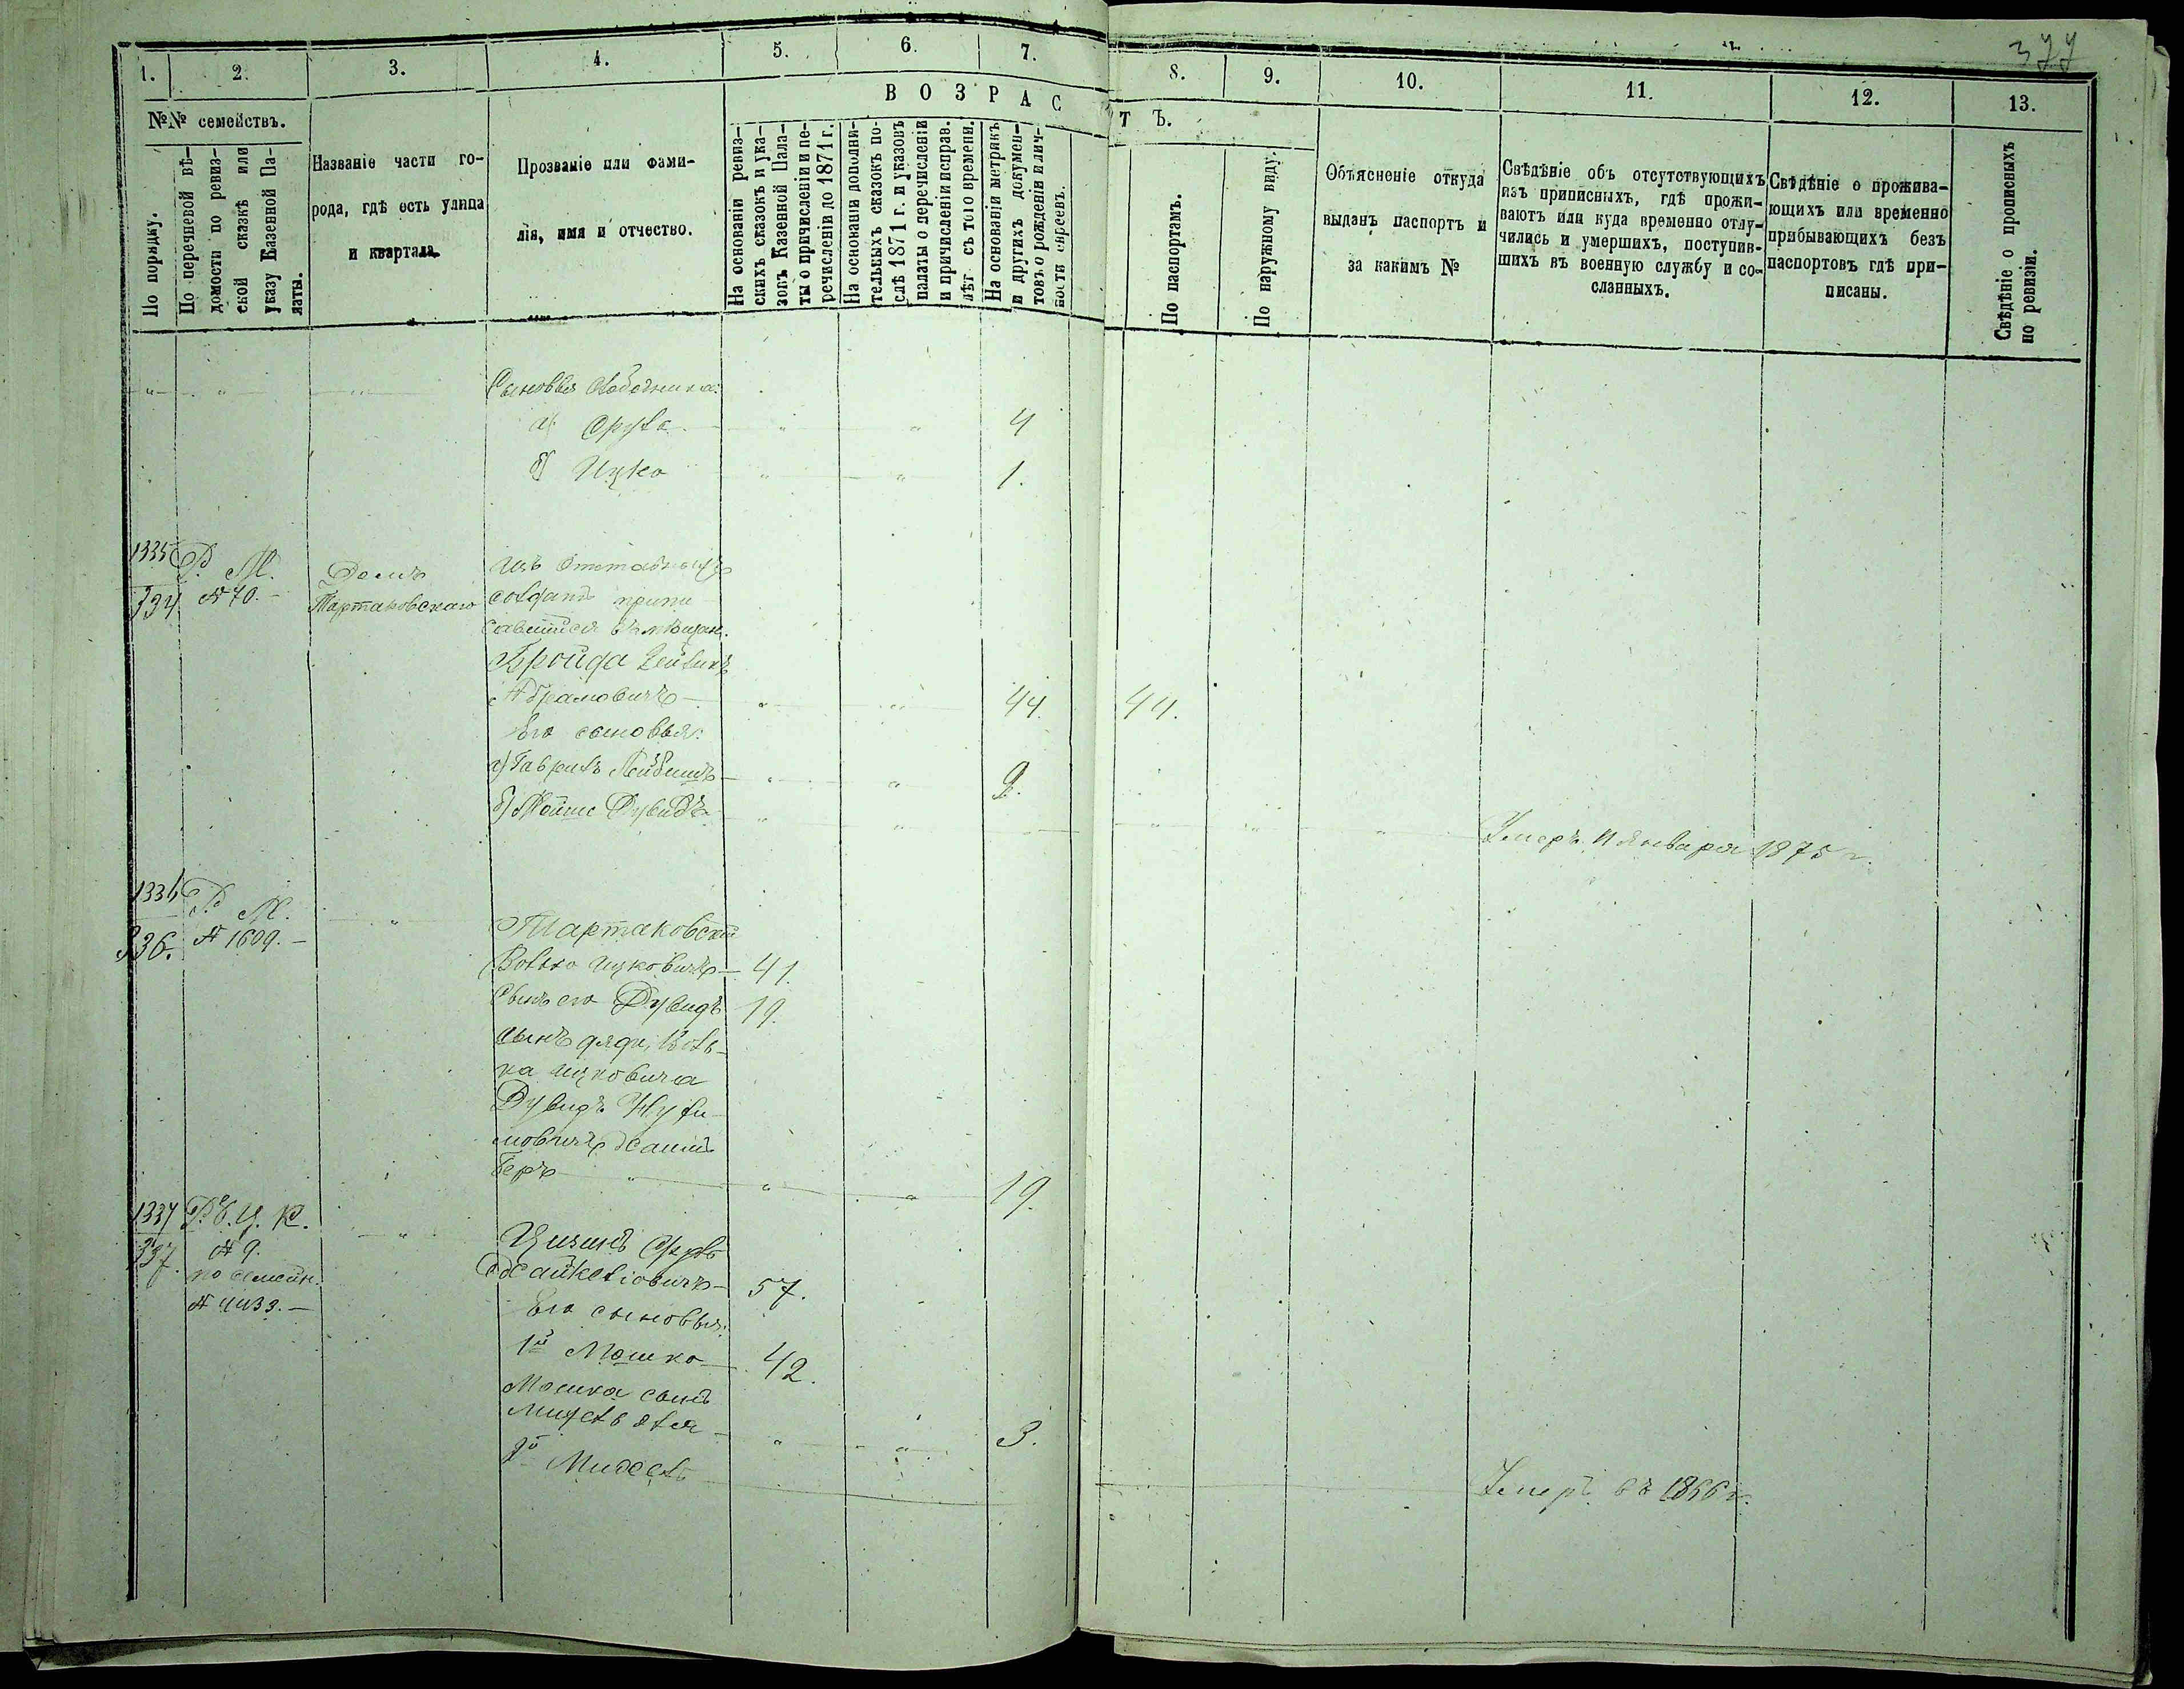 377
1.
2.
3.
4.
5.
6.
7.
8.
9.
10.
11.
12.
13.
№№ семействъ.
ВОЗРАСТЪ.
По порядку.
По перечневой вѣ-
домости по ревиз-
ской сказкѣ или
указу Казенной Па-
латы.
Названіе части го-
рода, гдѣ есть улица
и квартала.
Прозваніе или фами-
лія, имя и отчество.
На основаніи ревиз-
скихъ сказокъ и ука-
зовъ Казенной Пала-
ты о причисленіи и пе-
речисленіи до 1871 г.
На основаніи дополни-
тельныхъ сказокъ по-
слѣ 1871 г. и указовъ
палаты о перечисленіи
и причисленіи исправ.
лѣт съ того времени.
На основаніи метрикъ
и другихъ докумен-
товъ о рожденіи и лич-
ности евреевъ.
По паспортамъ.
По наружному виду.
Объясненіе откуда
выданъ паспортъ и
за какимъ №
Свѣдѣніе объ отсутствующихъ
изъ приписныхъ, гдѣ прожи-
ваютъ или куда временно отлу-
чились и умершихъ, поступив-
шихъ въ военную службу и со-
сланныхъ.
Свѣдѣніе о прожива-
ющихъ или временно
прибывающихъ безъ
паспортовъ гдѣ при-
писаны.
Свѣдѣніе о прописныхъ
по ревизіи.
Сыновья
а) Сруль 4
б) Ицко 1.
1335 Р. М. Домъ Изъ отставныхъ
334. № 70. Тартаковскаго солдатъ припи
савшійся въ мѣщан.
Бройда
Абрамовичъ 44. 44.
Его сыновья:
а) Гаврилъ Лейбишъ 2.
б) Мойше Дувидъ Умеръ 11 Января 1875 г.
1336 Р. М.
336. № 1609. Тартаковскій
Волько Ицковичъ 41.
Сынъ его Дувидъ 19.
сынъ дяди, Воль-
ка Ицковича
Дувидъ
мовичъ Хаимъ
Беръ 19.
1337 Р. Е. Ц. К.
337. № 9. Цизинъ Сруль
по семейн. Хайкеліовичъ 57.
№ 4433. Его сыновья:
1й Мошко 42.
Мошка сынъ
3.
2й Умеръ въ 1866 г.